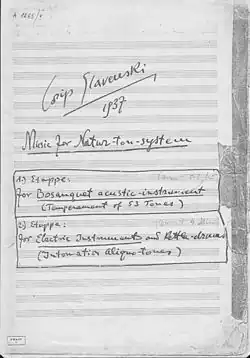 A 1265/1
Josip Slavenski
1937
Music for Natur-ton-system
1.) Etappe:
for Bosanquet acustic-instrument
(Temperament of 53 Tones)
2.) Etappe:
for Electric Instrument and Kettle-drums
(Intonation Aliquo-tones)